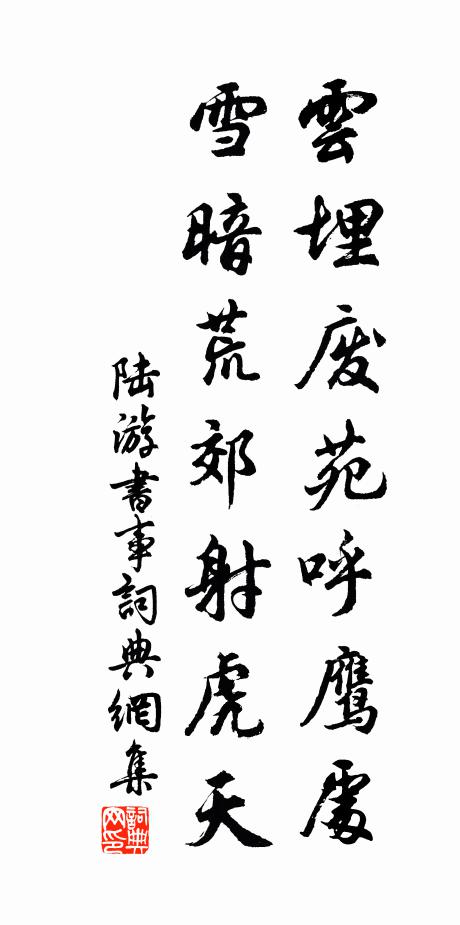 雲埋废苑呼鷹處
雪暗荒郊射虎天
陆游書事詞典網集
詞典网印